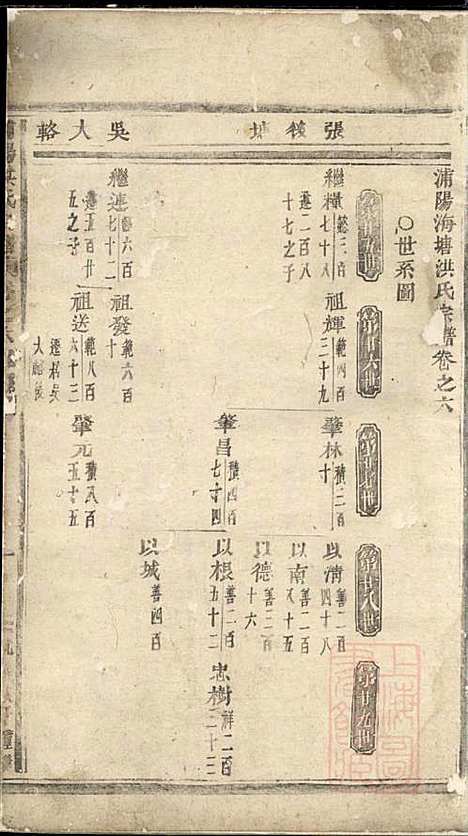 張後塘
吳大輅
浦陽海塘洪氏宗譜卷之六
〇世系圖
第十五世
第十六世
第十七世
第十八世
第十九世
繼糧
懿三百
七十八
遂二百八
十七之子
祖輝
範四百
三十九
肇林
積三百
十
以清
善二百
四十八
以南
善二百
八十五
以德
善三百
十六
肇昌
積四百
七十四
以根
善二百
五十二
忠樹
祥二百
二十三
以城
善四百
繼連
懿六百
七十二
遂五百廿
五之子
祖發
範六百
十
祖送
範八百
六十三
遷居吳
大輅後
肇元
積八百
五十五